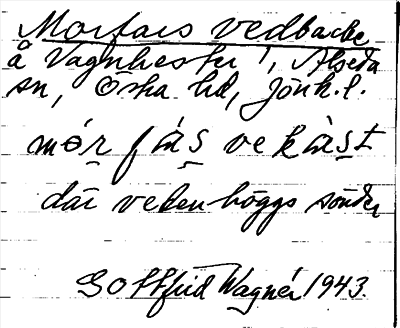 Morfars vedbacke
å Vagnhester 1, Alseda
sn, Östra hd, Jönk. l.
mo̱r fàs̱ ve kàs̱t
där veden höggs sönder
Gottfrid Wagnér 1943.